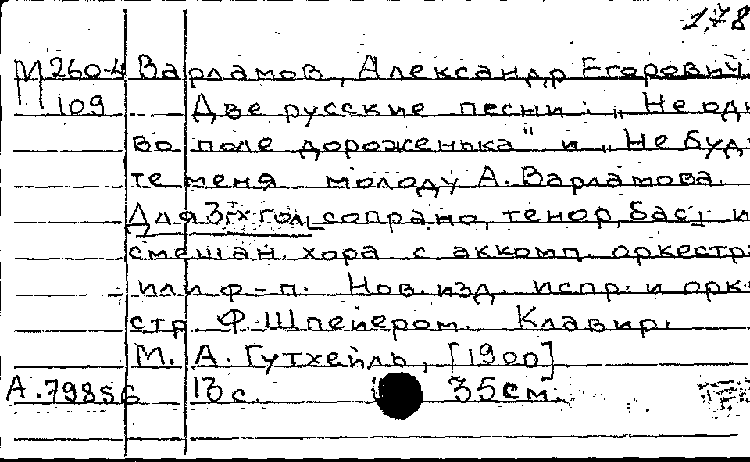 178
М 260-4 Варламов, Александр Егорович.
109 Две русские песни: „Не од
во поле дороженька" и „Не буд
те меня молоду А. Варламова.
Для 3-х гол. [сопрано, тенор, бас] и
смешан. хора с аккомп. оркестр
или ф-п. Нов. изд. испр. и орк
стр. Ф. Шпейером. Клавир.
М. А. Гутхейль, [1900]
А.79856 13 с. 35 см.